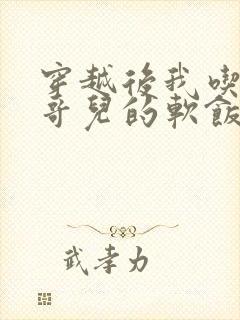 穿越後我喫
哥兒的軟飯
武孝力